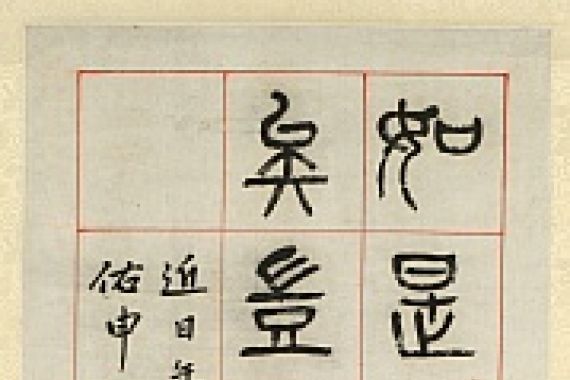 如是
矣豈
近日
佑申